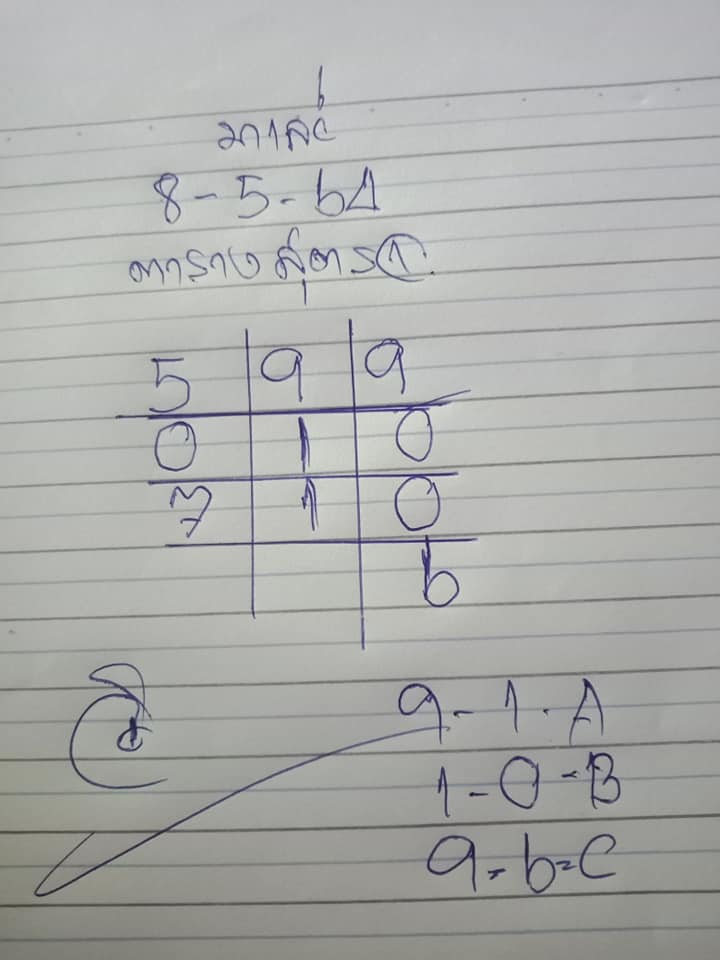 มาเลย์
8-5-64
ตารางสูตร1
5 9 9
0 1 0
7 1 0
6
9-1-A
1-0-B
9-6=C